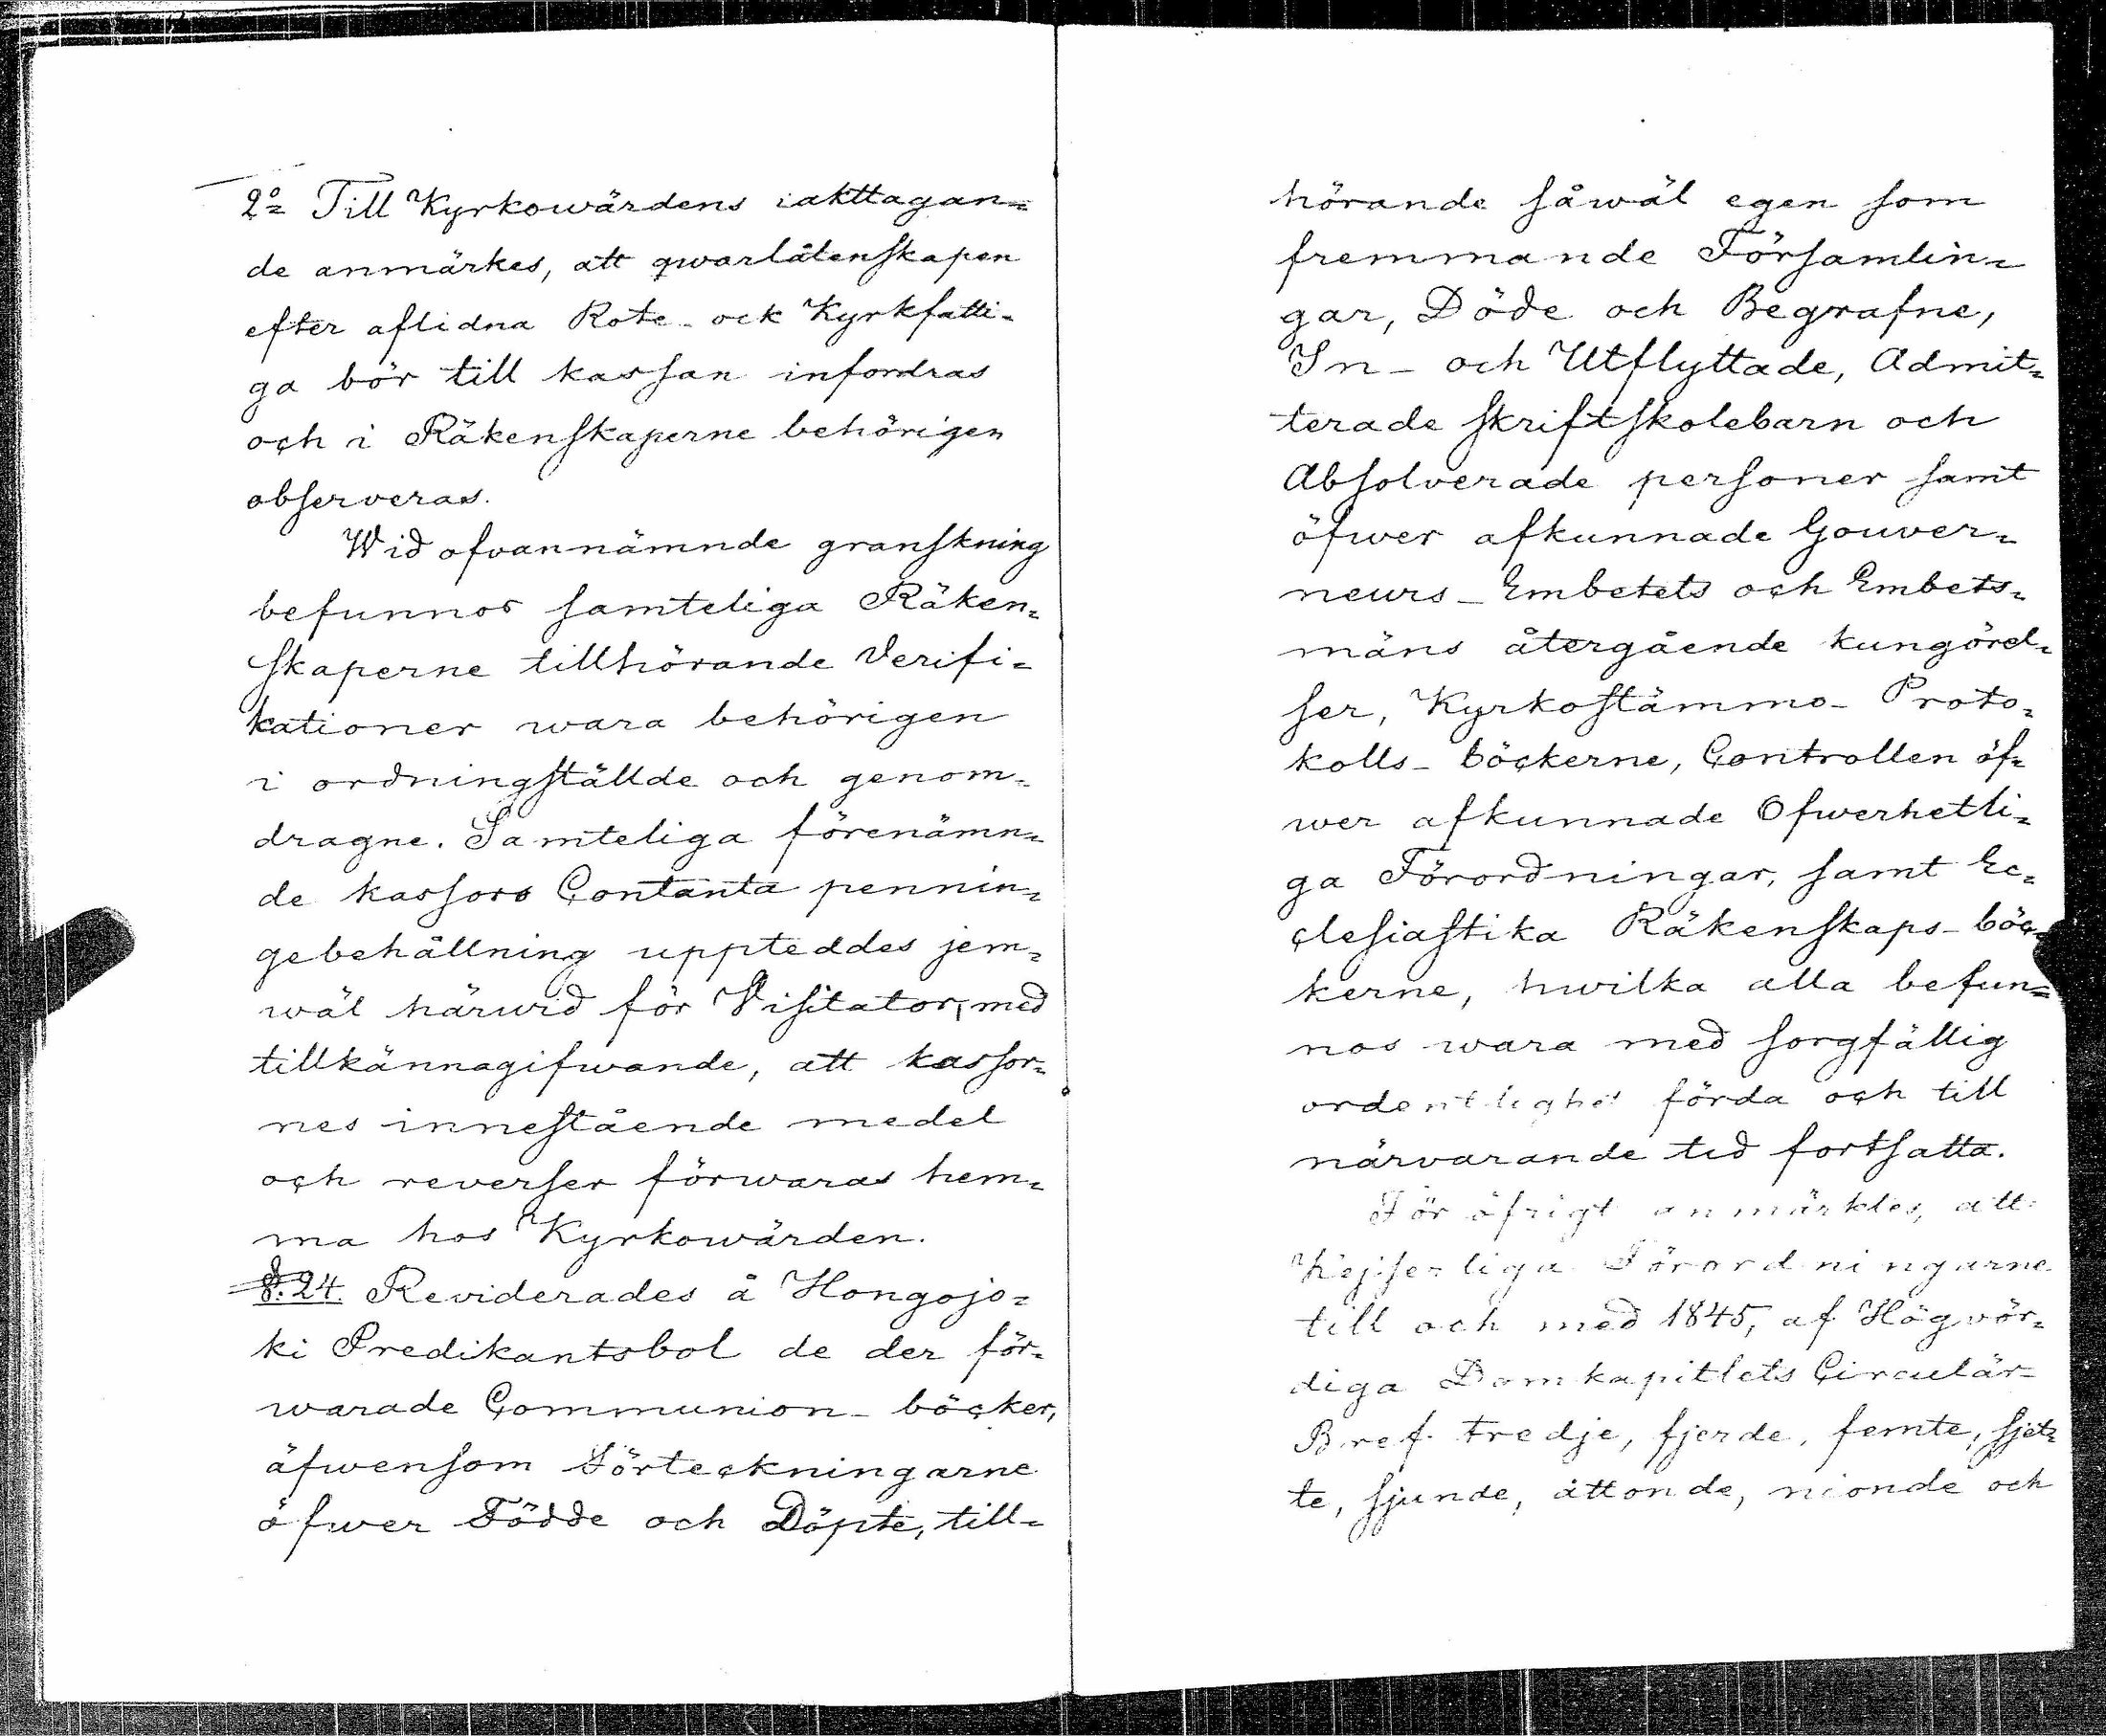 2º Till Kyrkowärdens iakttagan=
de anmärkes, att qwarlåtenskapen
efter aflidna Rote- ock Kyrkfatti=
ga bör till kassan infordras
och i Räkenskaperne behörigen
observeras.
Wid ofvannämnde granskning
befunnos samteliga Räken=
skaperne tillhörande Verifi=
kationer wara behörigen
i ordningställde och genom=
dragne. Samteliga förenämn=
de kassors Contanta pennin=
gebehållning uppteddes jem=
wäl härwid för Visitator, med
tillkännagifwande, att kassor=
nes innestående medel
och reverser förwaras hem=
ma hos Kyrkowärden.
§. 24. Reviderades å Hongojo=
ki Predikantsbol de der för=
warade Communion-böcker,
äfwensom Förteckningarne
öfwer Födde och Döpte, till=
hörande såwäl egen som
fremmande Församlin=
gar, Döde och Begrafne,
In- och Utflyttade, Admit=
terade skriftskolebarn och
Absolverade personer samt
öfwer afkunnade Gouver=
neurs-Embetets och Embets=
mäns återgående kungörel=
ser, Kyrkostämmo-Proto=
kolls-böckerne, Controllen öf=
wer afkunnade Ofwerhetli=
ga Förordningar, samt Ec=
clesiastika Räkenskaps-böc=
kerne, hwilka alla befun=
nos wara med sorgfällig
ordentlighet förda och till
närvarande tid fortsatta.
För öfrigt anmärktes, att
Kejserliga Förordningarne
till och med 1845, af Högvör=
diga Domkapitlets Circulär=
Bref tredje, fjerde, femte, sjet=
te, sjunde, åttonde, nionde och